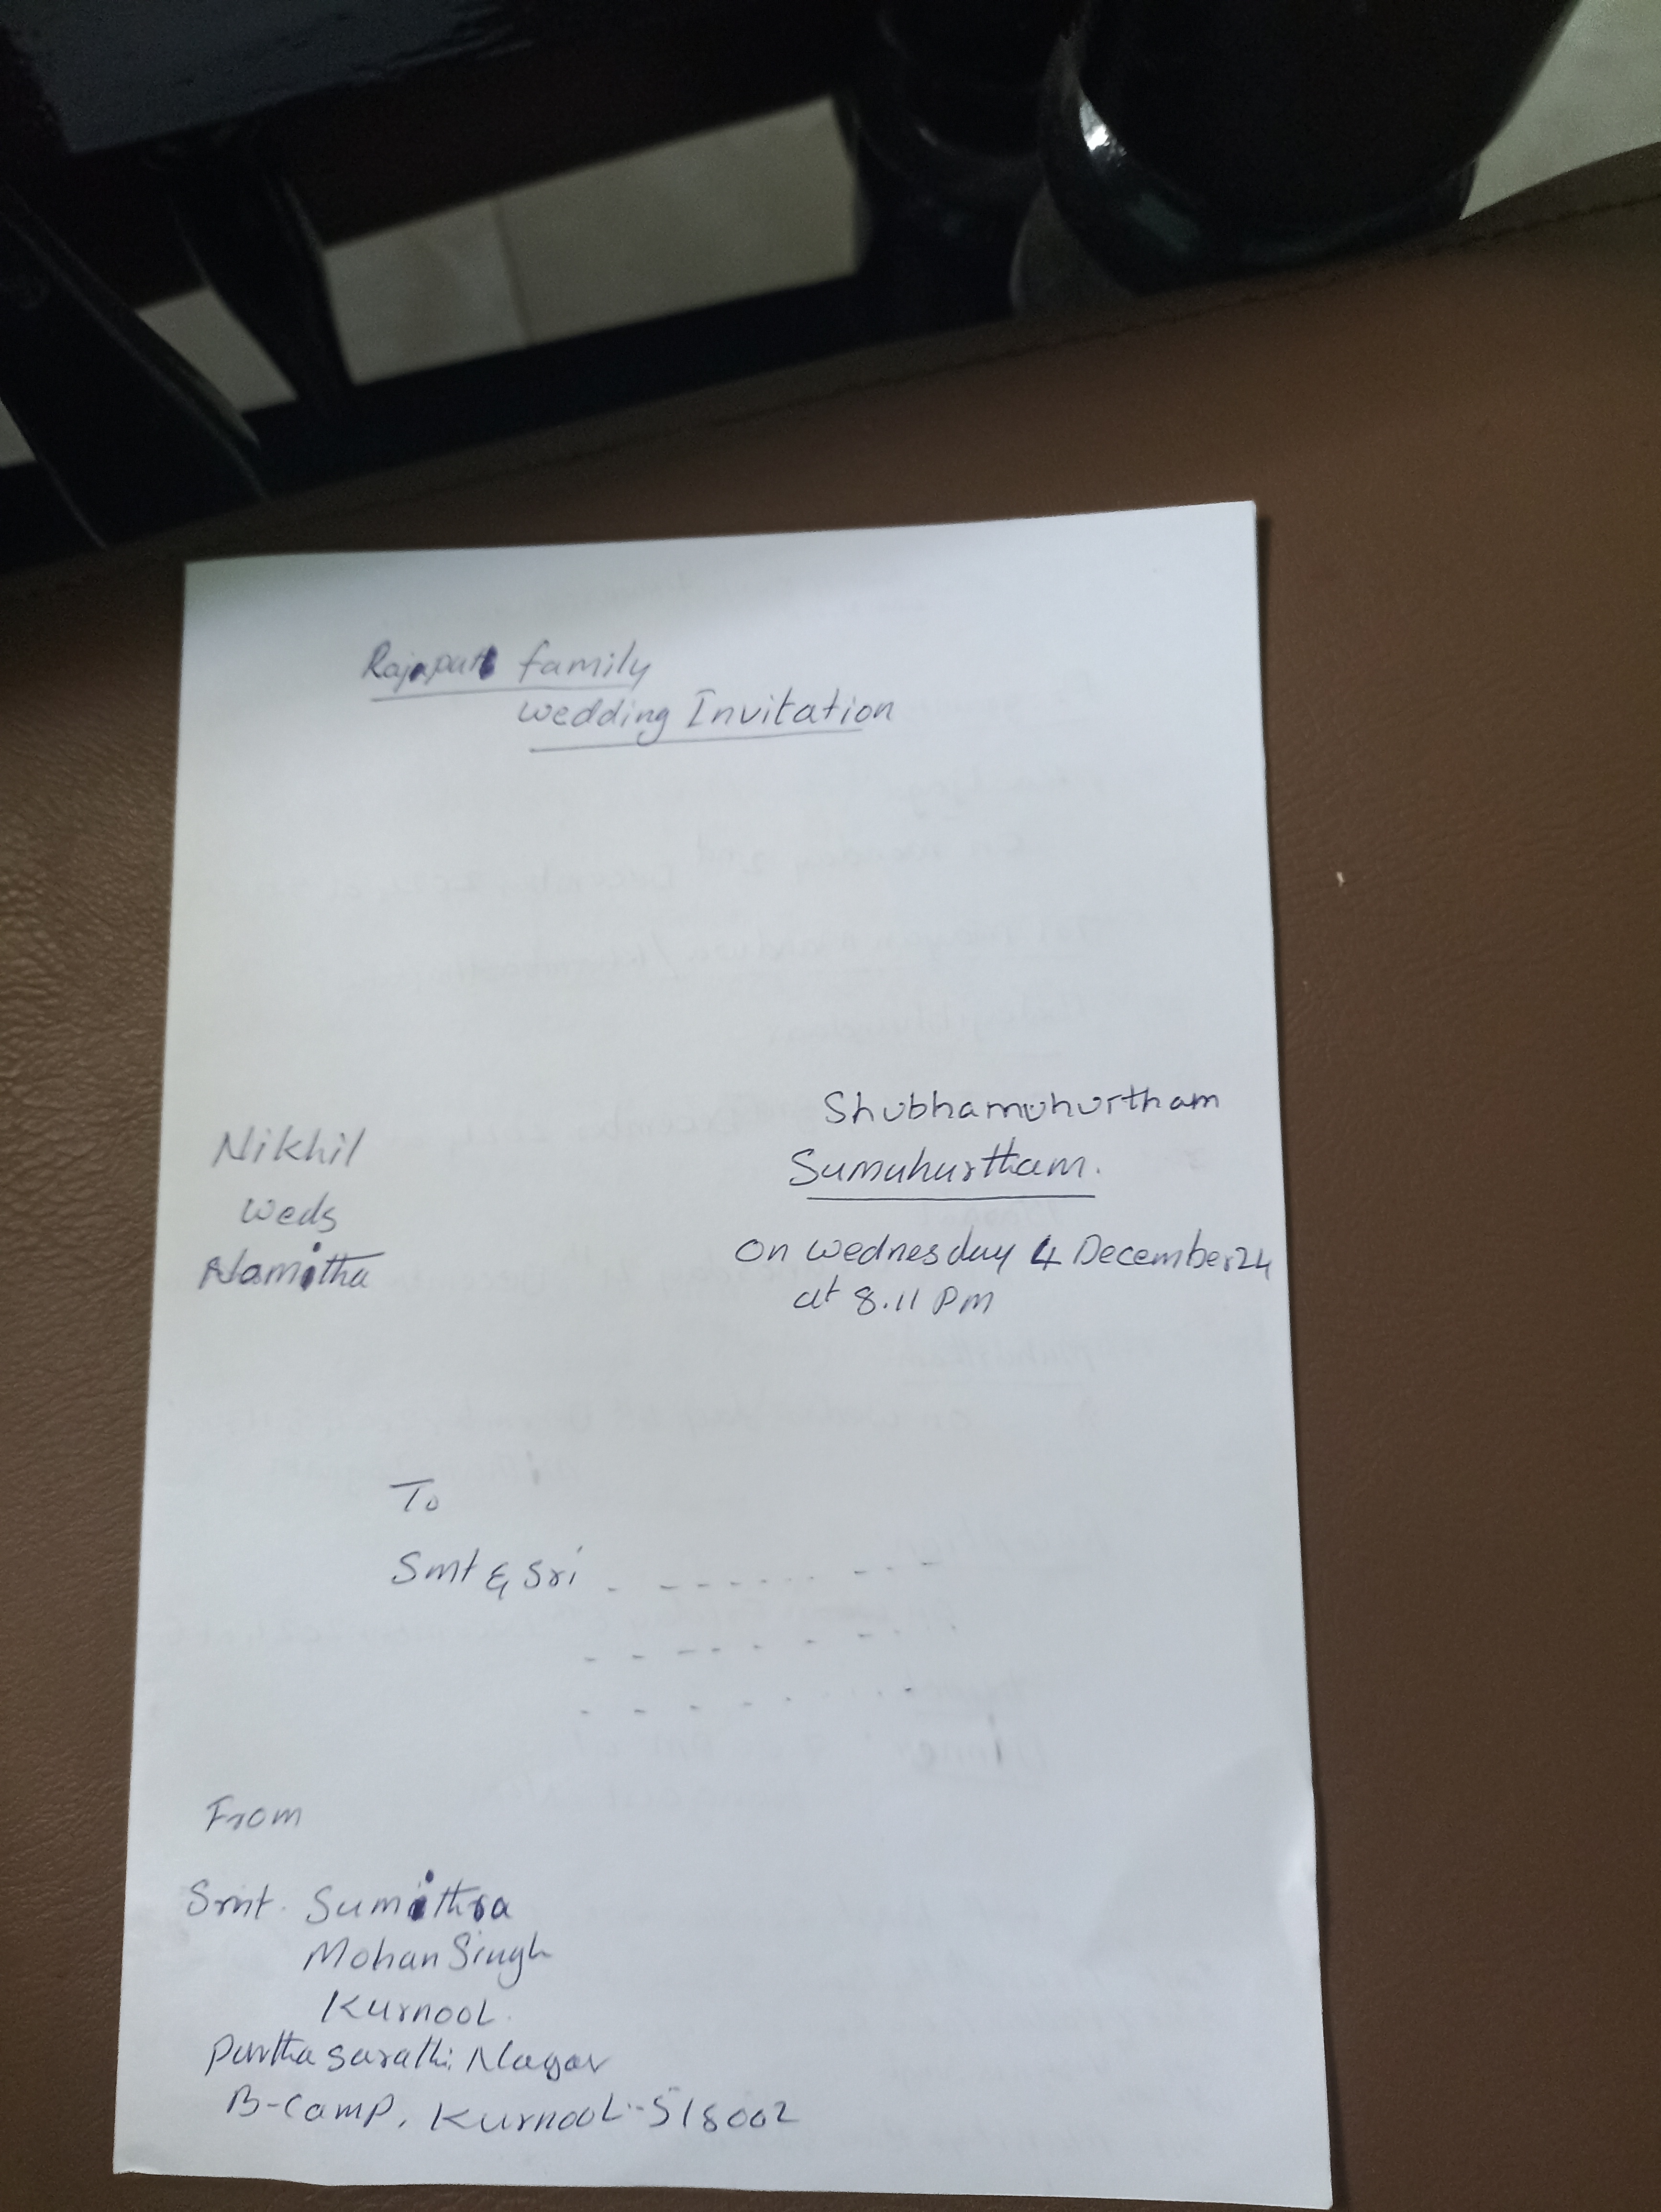 Rajaput family
Wedding Invitation
Shubhamuhurtham
Nikhil
Sumuhurtham.
Weds
On Wednesday 4 December 24
Namitha
at 8.11 PM
To
Smt & Sri
From
Smt. Sumithra
Mohan Singh
Kurnool.
Partha sarathi Nagar
B-Camp, Kurnool-518002